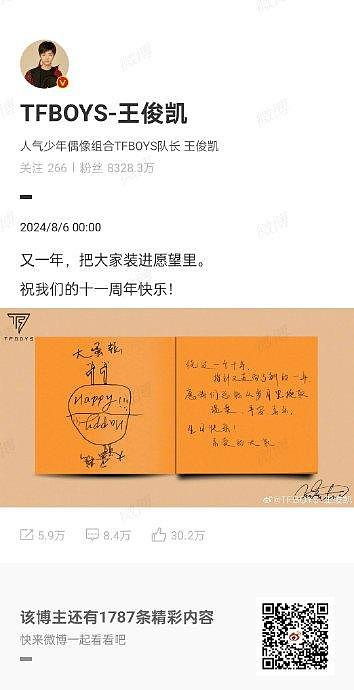 TFBOYS-王俊凯
人气少年偶像组合TFBOYS队长 王俊凯
关注 266 | 粉丝 8328.3万
2024/8/6 00:00
又一年，把大家装进愿望里。
祝我们的十一周年快乐！
TFBOYS
大蛋糕
Happy!!!
Happy!!!
大蛋糕
绕过一个十年，
指针又走回当刻的一年
愿我们
生日快乐！
亲爱的大家
@TFBOYS-王俊凯
5.9万
8.4万
30.2万
该博主还有1787条精彩内容
快来微博一起看看吧
微博